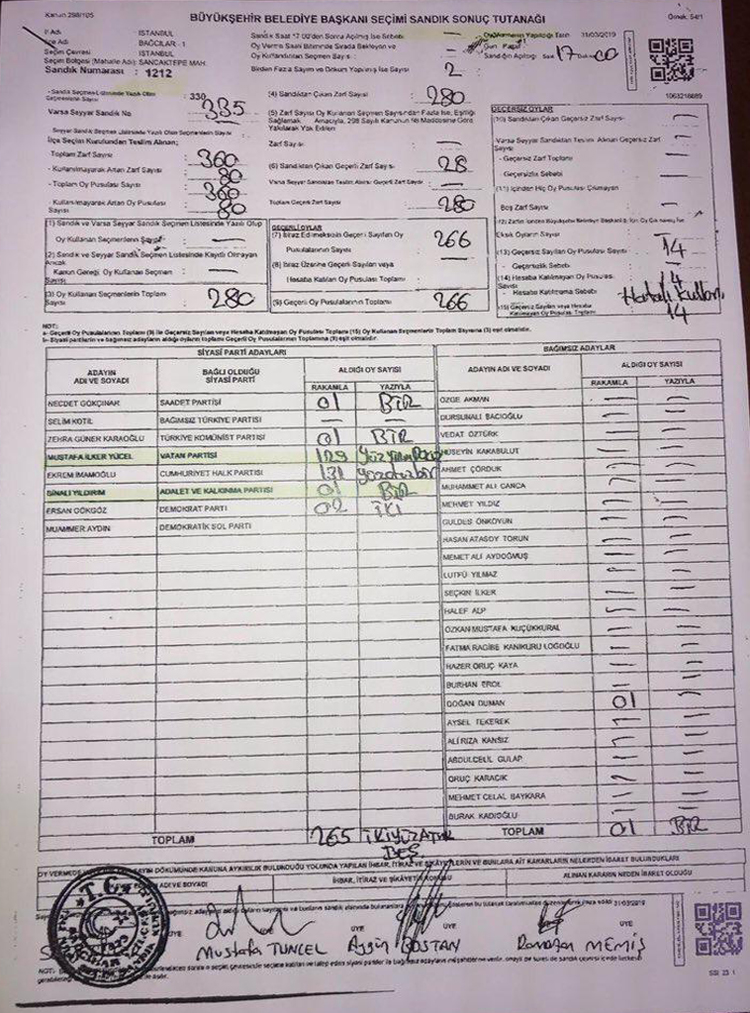 Kanun 298/105
BÜYÜKŞEHİR BELEDİYE BAŞKANI SEÇİMİ SANDIK SONUÇ TUTANAĞI
Örnek: 54/1
İl Adı : İSTANBUL
İlçe Adı : BAĞCILAR - 1
Seçim Çevresi : İSTANBUL
Seçim Bölgesi (Mahalle Adı): SANCAKTEPE MAH.
Sandık Numarası : 1212
Sandık Saat 17.00'den Sonra Açılmış İse Sebebi :
Oy Verme Saati Bitiminde Sırada Bekleyen ve
Oy Kullandırılan Seçmen Sayısı :
Birden Fazla Sayım ve Döküm Yapılmış İse Sayısı : 2
Oy Vermenin Yapıldığı Tarih 31/03/2019
Gün Pazar
Sandığın Açılışı Saat 17 Dakika 00
1063216689
- Sandık Seçmen Listesinde Yazılı Olan
Seçmenlerin Sayısı : 330
Varsa Seyyar Sandık No : 335
Seyyar Sandık Seçmen Listesinde Yazılı Olan Seçmenlerin Sayısı
İlçe Seçim Kurulundan Teslim Alınan;
Toplam Zarf Sayısı : 360
- Kullanılmayarak Artan Zarf Sayısı : 80
- Toplam Oy Pusulası Sayısı : 360
- Kullanılmayarak Artan Oy Pusulası
Sayısı : 80
(1) Sandık ve Varsa Seyyar Sandık Seçmen Listesinde Yazılı Olup
Oy Kullanan Seçmenlerin Sayısı :
(2) Sandık ve Seyyar Sandık Seçmen Listesinde Kayıtlı Olmayan
Ancak
Kanun Gereği Oy Kullanan Seçmen
Sayısı
(3) Oy Kullanan Seçmenlerin Toplam
Sayısı : 280
(4) Sandıktan Çıkan Zarf Sayısı : 280
(5) Zarf Sayısı Oy Kullanan Seçmen Sayısından Fazla İse, Eşitliği
Sağlamak Amacıyla, 298 Sayılı Kanunun 98 Maddesine Göre
Yakılarak Yok Edilen
Zarf Sayısı :
(6) Sandıktan Çıkan Geçerli Zarf Sayısı : 28
Varsa Seyyar Sandıktan Teslim Alınan Geçerli Zarf Sayısı :
Toplam Geçerli Zarf Sayısı : 280
GEÇERLİ OYLAR
(7) İtiraz Edilmeksizin Geçerli Sayılan Oy
Pusulalarının Sayısı : 266
(8) İtiraz Üzerine Geçerli Sayılan veya
Hesaba Katılan Oy Pusulası Toplamı :
(9) Geçerli Oy Pusulalarının Toplamı : 266
GEÇERSİZ OYLAR
(10) Sandıktan Çıkan Geçersiz Zarf Sayısı :
Varsa Seyyar Sandıktan Teslim Alınan Geçersiz Zarf
Sayısı
- Geçersiz Zarf Toplamı :
- Geçersizlik Sebebi :
(11) İçinden Hiç Oy Pusulası Çıkmayan
Boş Zarf Sayısı :
Eksik Oyların Sayısı :
(13) Geçersiz Sayılan Oy Pusulası Sayısı : 14
- Geçersizlik Sebebi
(14) Hesaba Katılmayan Oy Pusulası
Sayısı : 14
- Hesaba Katılmama Sebebi : Hatalı Kullan
(15) Geçersiz Sayılan veya Hesaba
Katılmayan Oy Pusulası Toplamı : 14
NOT:
a- Geçerli Oy Pusulalarının Toplamı (9) ile Geçersiz Sayılan veya Hesaba Katılmayan Oy Pusulası Toplamı (15) Oy Kullanan Seçmenlerin Toplam Sayısına (3) eşit olmalıdır.
b- Siyasi partilerin ve bağımsız adayların aldığı oyların toplamı Geçerli Oy Pusulalarının Toplamına (9) eşit olmalıdır.
SİYASİ PARTİ ADAYLARI
ADAYIN ADI VE SOYADI BAĞLI OLDUĞU SİYASİ PARTİ ALDIĞI OY SAYISI
RAKAMLA YAZIYLA
NECDET GÖKÇINAR SAADET PARTİSİ 01 BİR
SELİM KOTİL BAĞIMSIZ TÜRKİYE PARTİSİ — —
ZEHRA GÜNER KARAOĞLU TÜRKİYE KOMÜNİST PARTİSİ 01 BİR
MUSTAFA İLKER YÜCEL VATAN PARTİSİ 129
EKREM İMAMOĞLU CUMHURİYET HALK PARTİSİ 131 yüzotuzbir
BİNALİ YILDIRIM ADALET VE KALKINMA PARTİSİ 01 BİR
ERSAN GÖKGÖZ DEMOKRAT PARTİ 02 İKİ
MUAMMER AYDIN DEMOKRATİK SOL PARTİ
TOPLAM 265 İKİYÜZATMIŞ
BEŞ
BAĞIMSIZ ADAYLAR
ADAYIN ADI VE SOYADI ALDIĞI OY SAYISI
RAKAMLA YAZIYLA
ÖZGE AKMAN — —
DURSUNALİ BACIOĞLU — —
VEDAT ÖZTÜRK — —
HÜSEYİN KARABULUT — —
AHMET ÇÖRDÜK — —
MUHAMMET ALİ CANCA — —
MEHMET YILDIZ — —
GÜLDES ÖNKOYUN — —
HASAN ATASOY TORUN — —
MEMET ALİ AYDOĞMUŞ — —
LUTFÜ YILMAZ — —
SEÇKİN İLKER — —
HALEF ALP — —
ÖZKAN MUSTAFA KÜÇÜKKURAL — —
FATMA RAGİBE KANIKURU LOĞOĞLU — —
HAZER ORUÇ KAYA — —
BURHAN EROL — —
DOĞAN DUMAN 01
AYSEL TEKEREK — —
ALİ RIZA KANSIZ — —
ABDULCELİL GULAP — —
ORUÇ KARACIK — —
MEHMET CELAL BAYKARA — —
BURAK KADIOĞLU — —
TOPLAM 01 BİR
ADI VE SOYADI İHBAR, İTİRAZ VE ŞİKAYETİN KONUSU ALINAN KARARIN NEDEN İBARET OLDUĞU
31/03/2019
T.C.
ÜYE ÜYE ÜYE
Mustafa TUNCEL Aygün BOSTAN Ramazan MEMİŞ